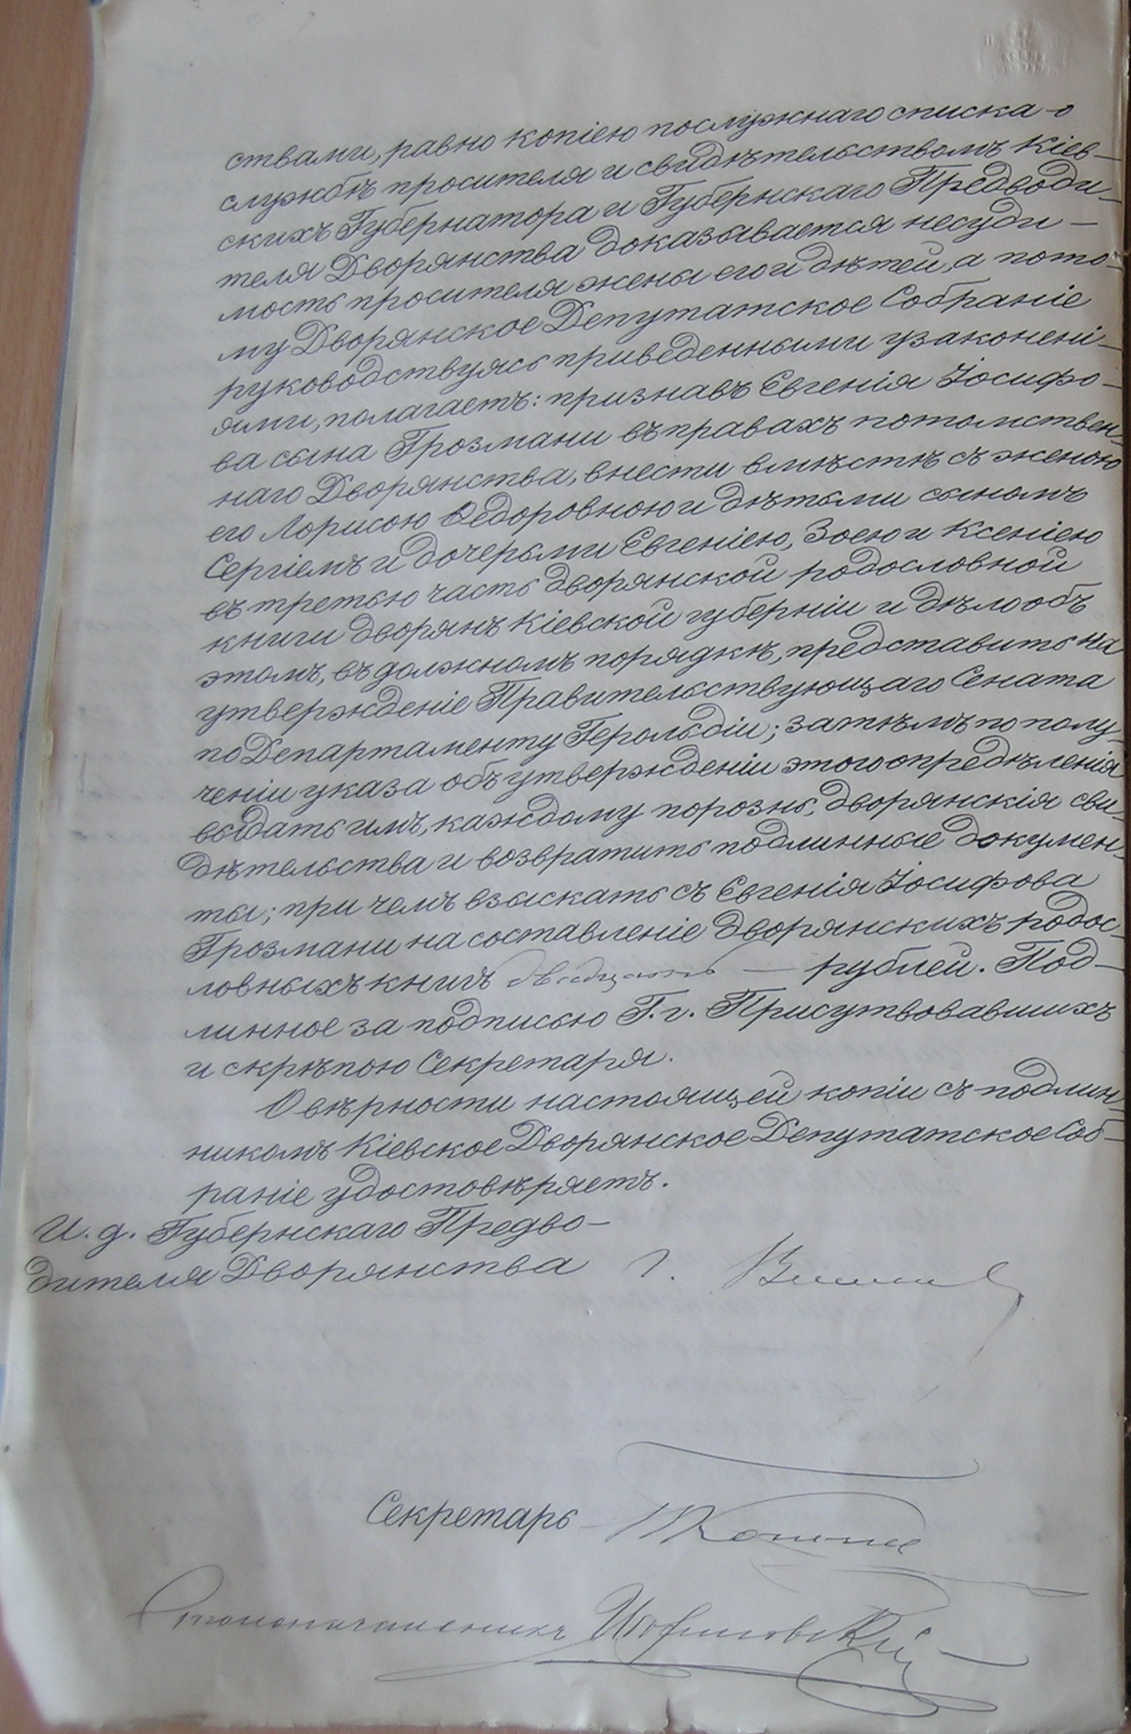 ствами, равно копіею послужнаго списка о
службѣ просителя и свидѣтельствомъ Кіев-
скихъ Губернатора и Губернскаго Предводи-
теля Дворянства доказывается несуди-
мость просителя жены его и дѣтей, а пото-
му Дворянское Депутатское Собраніе
руководствуясь приведенными узаконені-
ями, полагаетъ: признавъ Евгенія Іосифо-
ва сына Грозмани въ правахъ потомствен-
наго Дворянства, внести вмѣстѣ съ женою
его Ларисою Ѳедоровною и дѣтьми сыномъ
Сергіемъ и дочерьми Евгеніею, Зоею и Ксеніею
въ третью часть дворянской родословной
книги дворянъ Кіевской губерніи и дѣло объ
этомъ, въ должномъ порядкѣ, представить на
утвержденіе Правительствующаго Сената
по Департаменту Герольдіи; затѣмъ по полу-
ченіи указа объ утвержденіи этого опредѣленія
выдать имъ, каждому порознь, дворянскія сви-
дѣтельства и возвратить подлинные докумен-
ты; при чемъ взыскать съ Евгенія Іосифова
Грозмани на составленіе дворянскихъ родос-
ловныхъ книгъ двадцать — рублей. Под-
линное за подписью Г.г. Присутвовавшихъ
и скрѣпою Секретаря.
О вѣрности настоящей копіи съ подлин-
никомъ Кіевское Дворянское Депутатское Соб-
раніе удостовѣряетъ.
И. д. Губернскаго Предво-
дителя Дворянства
Секретарь
Столоначальникъ